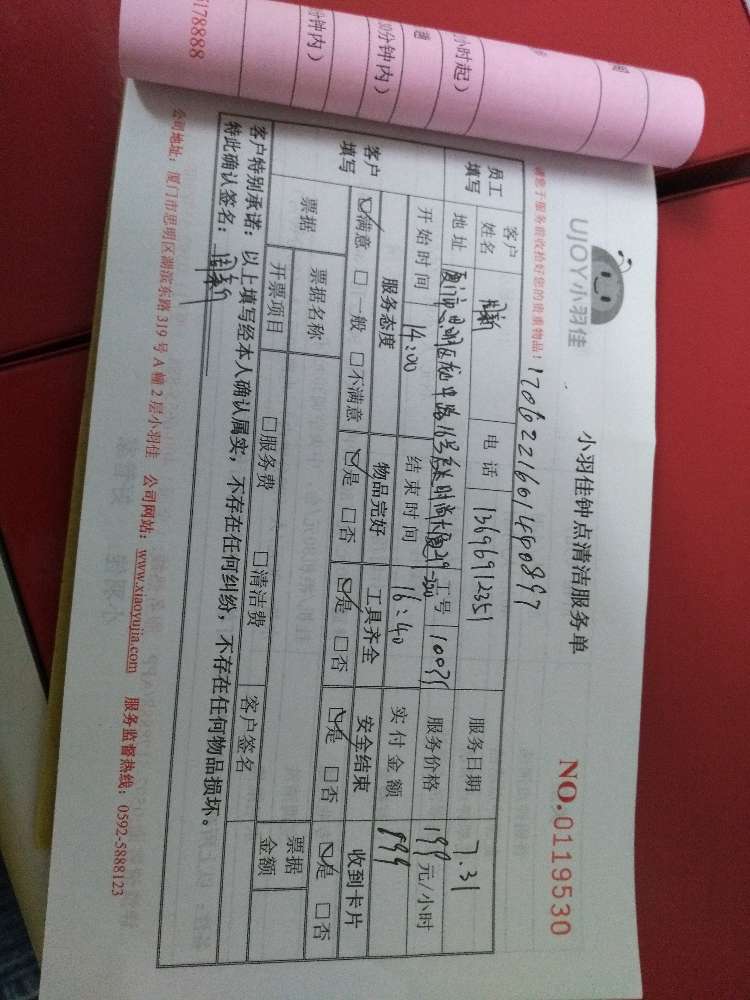 5178888
分钟内）
0分钟内）
小时起）
UJOY小羽佳
小羽佳钟点清洁服务单
NO.0119530
请您于服务前收拾好您的贵重物品！
员工填写
客户姓名
电话 13696912351
服务日期 7.31
地址
工号
服务价格 199 元/小时
开始时间 14:00
结束时间 16:40
实付金额
客户填写
服务态度 物品完好 工具齐全 安全结束 收到卡片
☑满意 □一般 □不满意 ☑是 □否 ☑是 □否 ☑是 □否 ☑是 □否
票据
票据名称
客户签名
票据金额
开票项目 □服务费 □清洁费
客户特别承诺：以上填写经本人确认属实，不存在任何纠纷，不存在任何物品损坏。
特此确认签名：
公司地址：厦门市思明区湖滨东路319号A幢2层小羽佳 公司网站：www.xiaoyujia.com 服务监督热线：0592-5888123